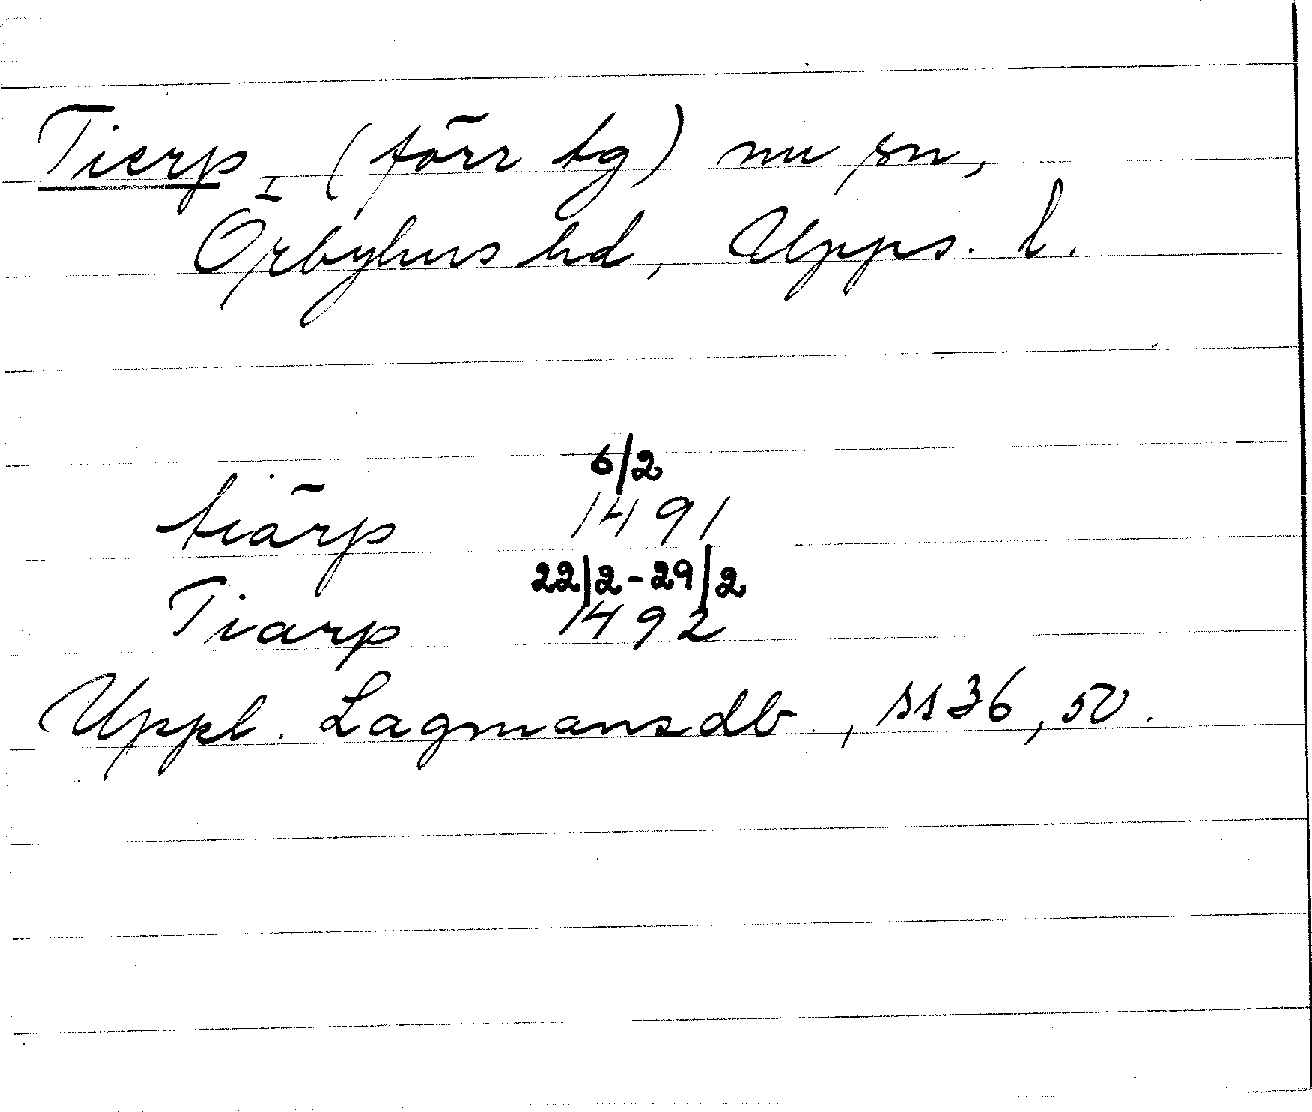 Tierp I (förr tg) nu sn,
Örbyhus hd, Upps. l.
6/2
tiärp 1491
22/2-29/2
Tiarp 1492
Uppl. Lagmansdb, ss 36, 50.